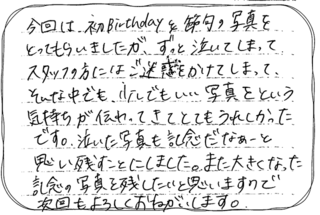 今回は、初Birthdayと節句の写真を
とってもらいましたが、ずっと泣いてしまって
スタッフの方にはご迷惑をかけてしまって、
そんな中でも、少しでもいい写真をという
気持ちが伝わってきてとてもうれしかった
です。泣いた写真も記念だなぁーと
思い残すことにしました。また大きくなった
記念の写真を残したいと思いますので
次回もよろしくおねがいします。